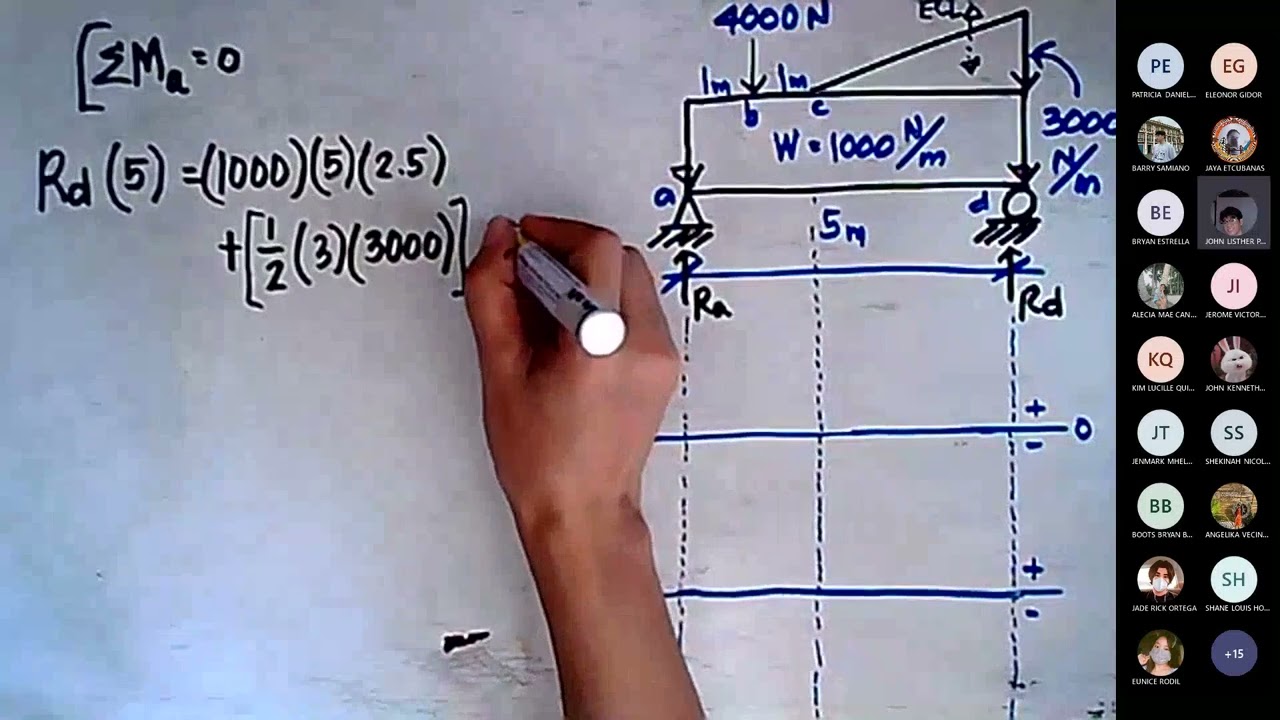 [ΣMa = 0
Rd (5) = (1000)(5)(2.5)
+ [1/2 (3)(3000)]
4000N
1m
1m
b
c
3000
N/m
W = 1000 N/m
a
d
5m
Ra
Rd
+
-
0
+
-
PE
PATRICIA DANIEL...
EG
ELEONOR GIDOR
BARRY SAMIANO
JAYA ETCUBANAS
BE
BRYAN ESTRELLA
JOHN LISTHER P...
ALECIA MAE CAN...
JI
JEROME VICTOR...
KQ
KIM LUCILLE QUI...
JOHN KENNETH...
JT
JENMARK MHEL...
SS
SHEKINAH NICOL...
BB
BOOTS BRYAN B...
ANGELIKA VECIN...
JADE RICK ORTEGA
SH
SHANE LOUIS HO...
EUNICE RODIL
+15